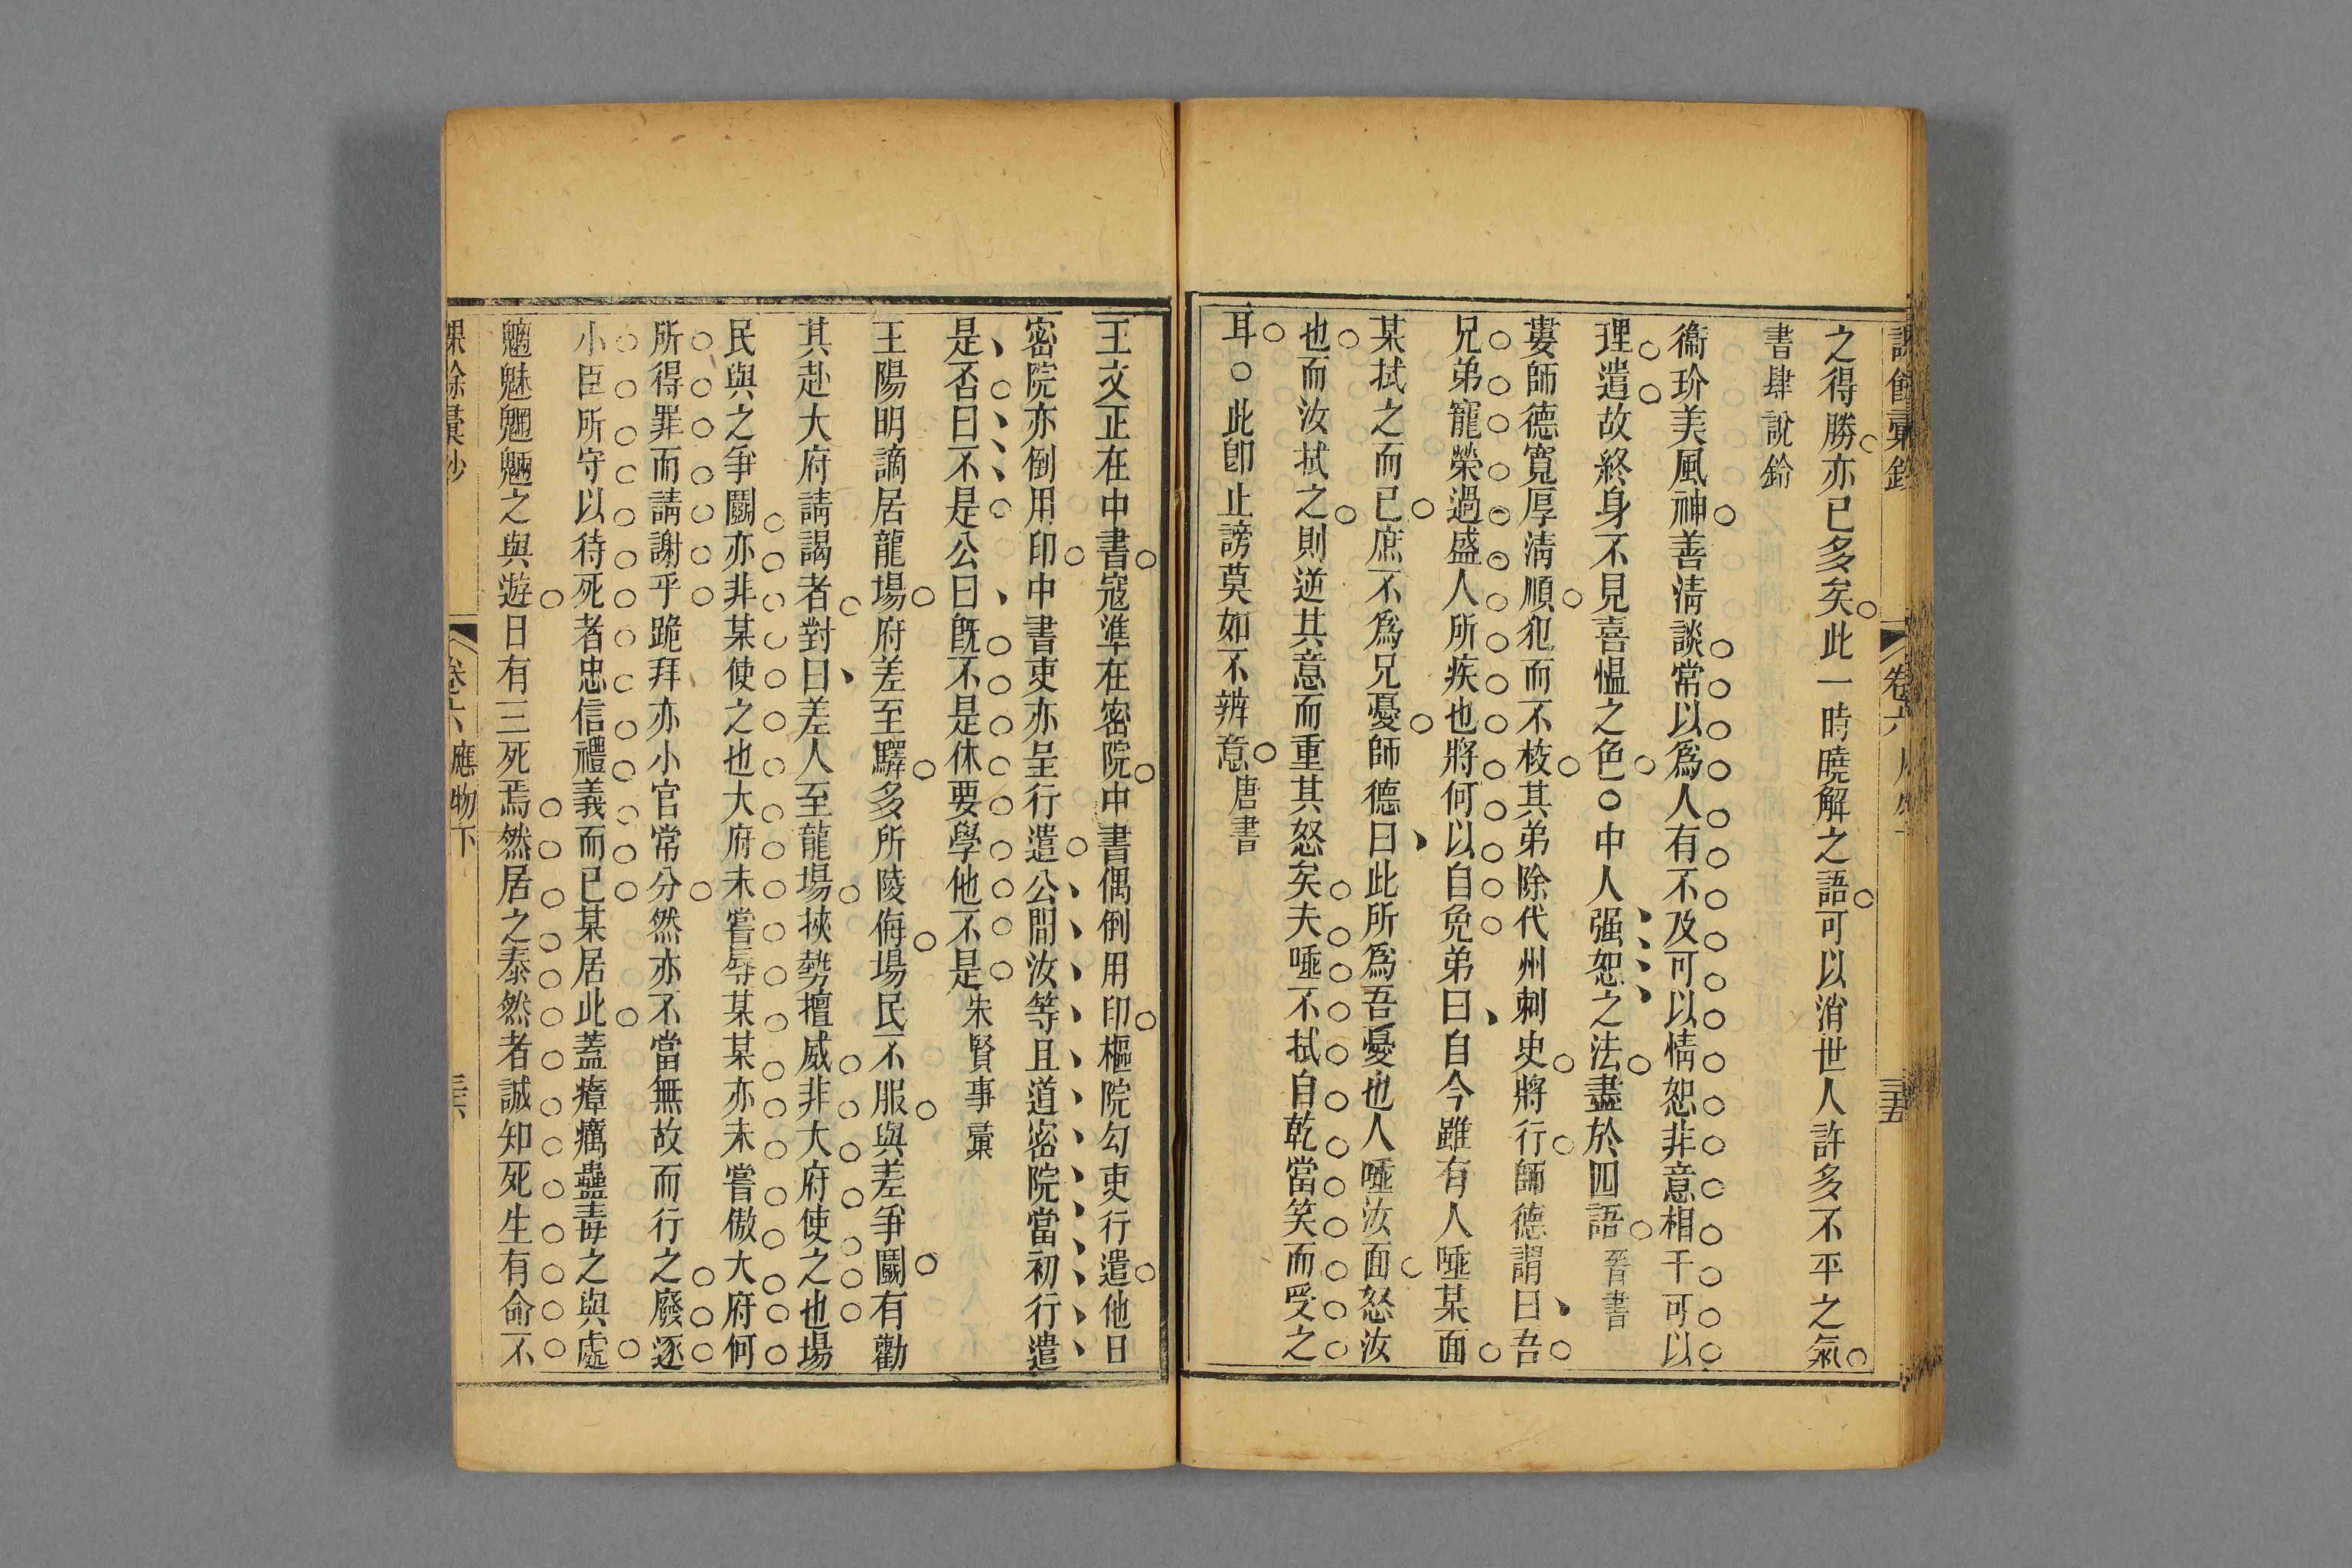 卷六
三五
之得勝亦已多矣此一時曉解之語可以消世人許多不平之氣
書肆說鈴
衞玠美風神善淸談常以爲人有不及可以情恕非意相干可以
理遣故終身不見喜慍之色○中人强恕之法盡於四語晉書
婁師德寬厚淸順犯而不校其弟除代州刺史將行師德謂曰吾
兄弟寵榮過盛人所疾也將何以自免弟曰自今雖有人唾某面
某拭之而已庶不爲兄憂師德曰此所爲吾憂也人唾汝面怒汝
也而汝拭之則逆其意而重其怒矣夫唾不拭自乾當笑而受之
耳○此卽止謗莫如不辨意唐書
王文正在中書寇準在密院中書偶倒用印樞院勾吏行遣他日
密院亦倒用印中書吏亦呈行遣公問汝等且道密院當初行遣
是否曰不是公曰旣不是休要學他不是朱賢事彙
王陽明謫居龍場府差至驛多所陵侮場民不服與差爭鬭有勸
其赴大府請謁者對曰差人至龍場挾勢擅威非大府使之也場
民與之爭鬭亦非某使之也大府未嘗辱某某亦未嘗傲大府何
所得罪而請謝乎跪拜亦小官常分然亦不當無故而行之廢逐
小臣所守以待死者忠信禮義而已某居此蓋瘴癘蠱毒之與處
魑魅魍魎之與遊日有三死焉然居之泰然者誠知死生有命不
課餘彙鈔
卷六
應物下
三六